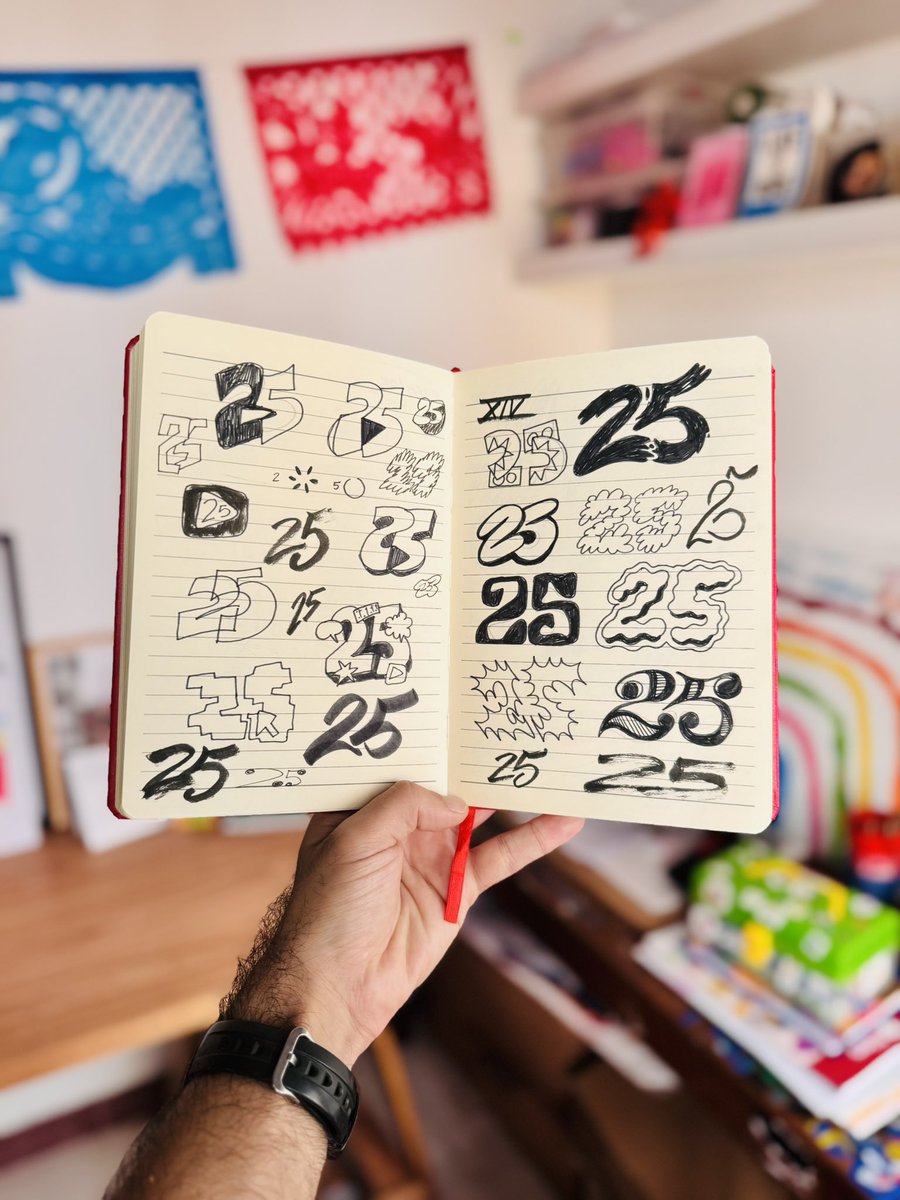 25
25
25
25
2 5
25
25
25
25
25
25
25
25
25
25
25
25
XIV
25
25
25
25
25
25
25
25
25
25
25